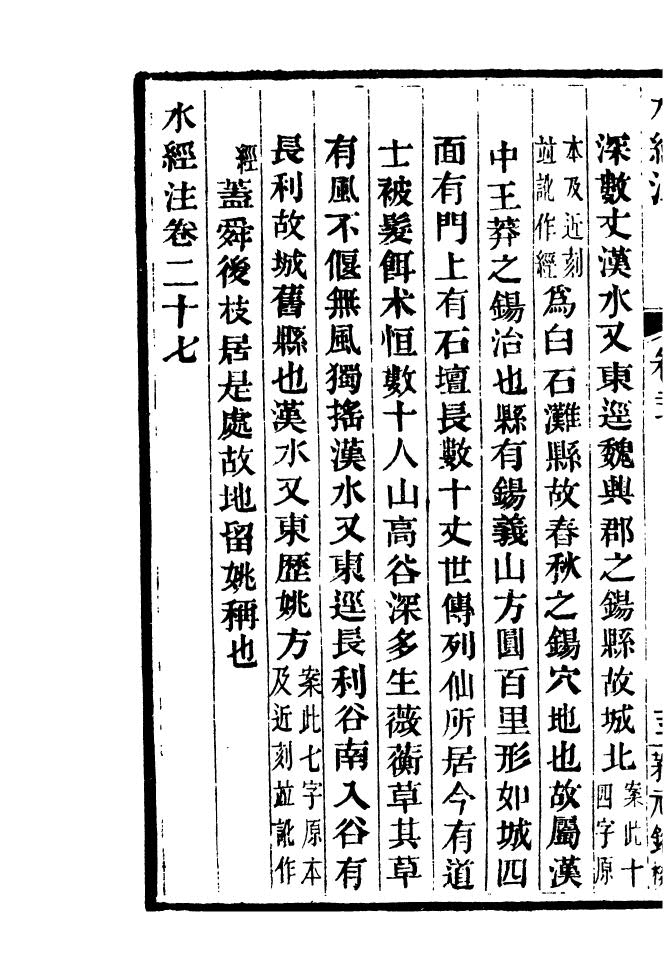 水經注
深數丈漢水又東逕魏興郡之鍚縣故城北案此十四字原
本及近刻並訛作經爲白石灘縣故春秋之鍚穴地也故屬漢
中王莽之鍚治也縣有鍚義山方圓百里形如城四
面有門上有石壇長數十丈世傳列仙所居今有道
士被髮餌朮恒數十人山高谷深多生薇蘅草其草
有風不偃無風獨搖漢水又東逕長利谷南入谷有
長利故城舊縣也漢水又東歷姚方案此七字原本及近刻並訛作
經蓋舜後枝居是處故地留姚稱也
水經注卷二十七